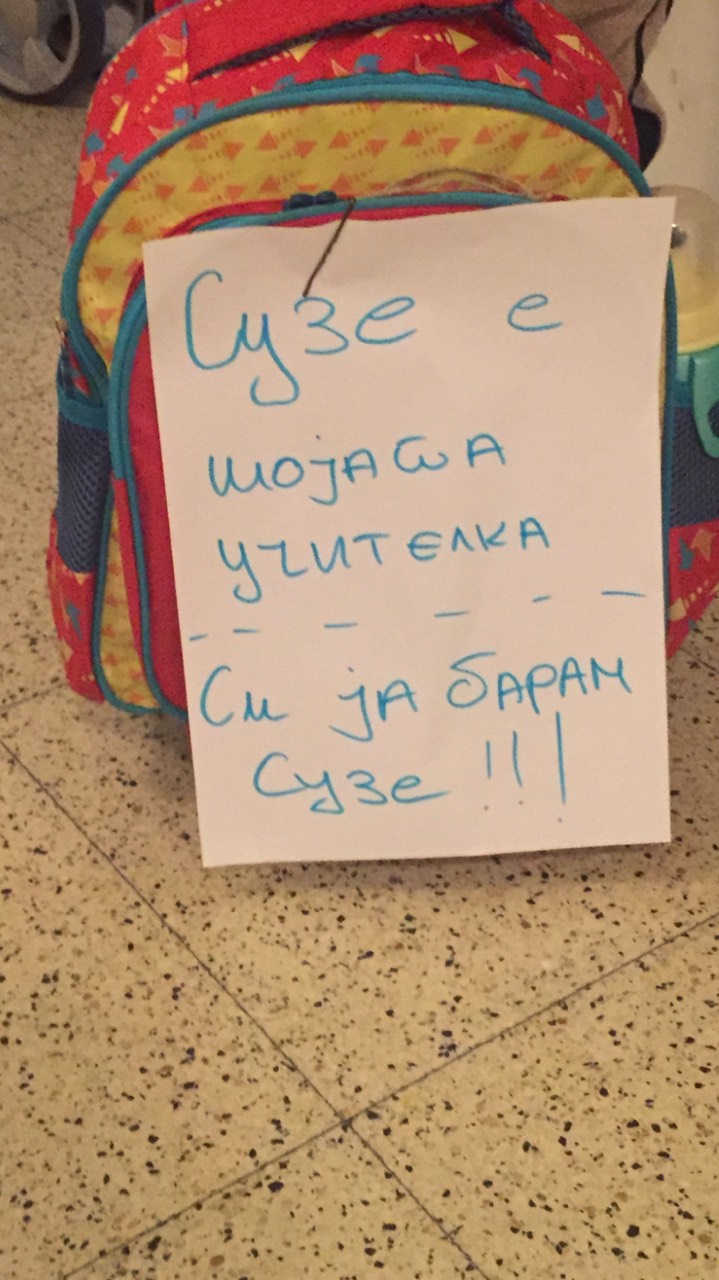 Сузе е
мојата
учителка
Си ја барам
Сузе !!!